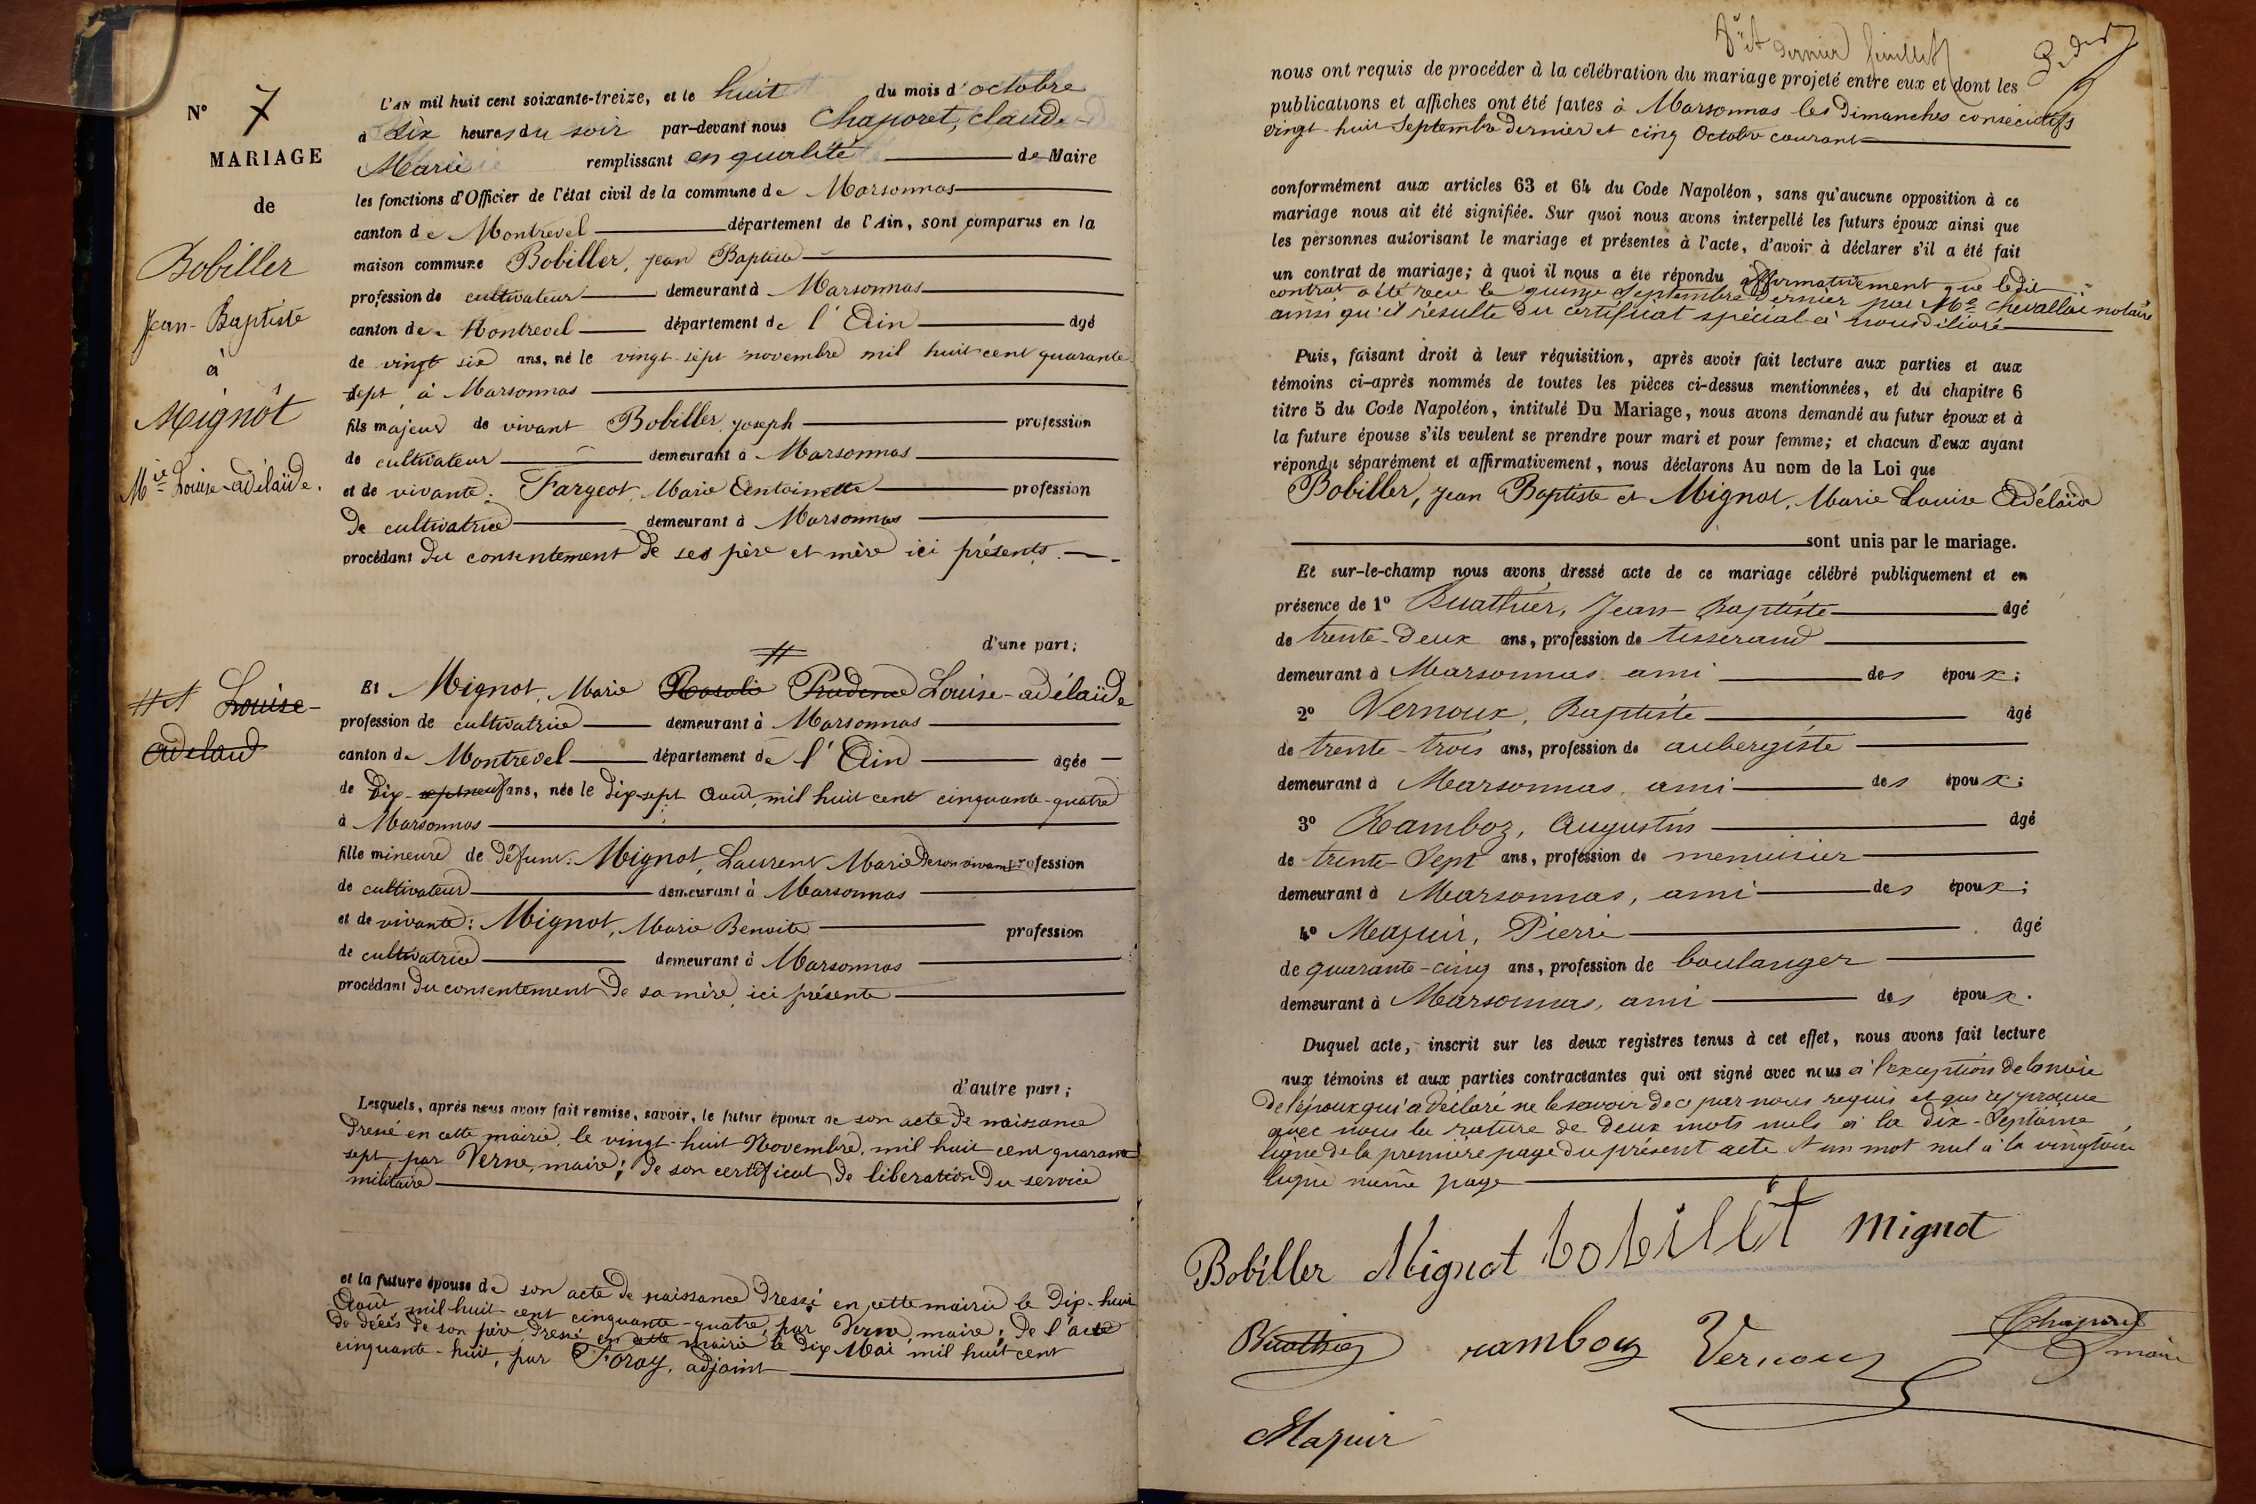 N° 7
MARIAGE
de
Bobiller
Jean-Baptiste
à
Mignot
Mie Louise-adélaïde.
L'AN mil huit cent soixante-treize, et le huit du mois d'octobre
à six heures du soir par-devant nous Chaporet, Claude-
Marie remplissant en qualité de Maire
les fonctions d'Officier de l'état civil de la commune de Marsonnas
canton de Montrevel département de l'Ain, sont comparus en la
maison commune Bobiller, Jean Baptiste
profession de cultivateur demeurant à Marsonnas
canton de Montrevel département de l'Ain âgé
de vingt six ans, né le vingt-sept novembre mil huit cent quarante
sept, à Marsonnas
fils majeur de vivant Bobiller, Joseph profession
de cultivateur demeurant à Marsonnas
et de vivante: Fargeot, Marie Antoinette profession
de cultivatrice demeurant à Marsonnas
procédant du consentement de ses père et mère ici présents.
d'une part;
Louise-
adelaid
Et Mignot, Marie Rosalie Prudence Louise-adélaïde
profession de cultivatrice demeurant à Marsonnas
canton de Montrevel département de l'Ain âgée
de dix-neuf ans, née le dix-sept Août, mil huit cent cinquante-quatre
à Marsonnas
fille mineure de défunt: Mignot, Laurent Marie de son vivant profession
de cultivateur demeurant à Marsonnas
et de vivante: Mignot, Marie Benoite profession
de cultivatrice demeurant à Marsonnas
procédant du consentement de sa mère, ici présente
d'autre part;
Lesquels, après nous avoir fait remise, savoir, le futur époux de son acte de naissance
dressé en cette mairie, le vingt-huit Novembre, mil huit cent quarante
sept par Verne, maire; de son certificat de libération du service
militaire
et la future épouse de son acte de naissance dressé en cette mairie le dix-huit
Août, mil huit-cent cinquante-quatre, par Verne, maire; de l'acte
de décès de son père dressé en cette mairie le dix Mai mil huit cent
cinquante-huit, par Foray, adjoint
dernier feuillet
nous ont requis de procéder à la célébration du mariage projeté entre eux et dont les
publications et affiches ont été faites à Marsonnas les Dimanches consécutifs
vingt-huit Septembre dernier et cinq Octobre courant
conformément aux articles 63 et 64 du Code Napoléon, sans qu'aucune opposition à ce
mariage nous ait été signifiée. Sur quoi nous avons interpellé les futurs époux ainsi que
les personnes autorisant le mariage et présentes à l'acte, d'avoir à déclarer s'il a été fait
un contrat de mariage; à quoi il nous a été répondu affirmativement que ledit
contrat a été reçu le quinze Septembre dernier par Me Chevallai notaire
ainsi qu'il résulte du certificat spécial à nous délivré
Puis, faisant droit à leur réquisition, après avoir fait lecture aux parties et aux
témoins ci-après nommés de toutes les pièces ci-dessus mentionnées, et du chapitre 6
titre 5 du Code Napoléon, intitulé Du Mariage, nous avons demandé au futur époux et à
la future épouse s'ils veulent se prendre pour mari et pour femme; et chacun d'eux ayant
répondu séparément et affirmativement, nous déclarons Au nom de la Loi que
Bobiller, Jean Baptiste et Mignot, Marie Louise Adélaïde
sont unis par le mariage.
Et sur-le-champ nous avons dressé acte de ce mariage célébré publiquement et en
présence de 1° Buathier, Jean-Baptiste âgé
de trente-deux ans, profession de tisserand
demeurant à Marsonnas, ami des époux;
2° Vernoux, Baptiste âgé
de trente-trois ans, profession de aubergiste
demeurant à Marsonnas, ami des époux;
3° Ramboz, Augustin âgé
de trente-Sept ans, profession de menuisier
demeurant à Marsonnas, ami des époux;
4° Mazuir, Pierre âgé
de quarante-cinq ans, profession de boulanger
demeurant à Marsonnas, ami des époux.
Duquel acte, inscrit sur les deux registres tenus à cet effet, nous avons fait lecture
aux témoins et aux parties contractantes qui ont signé avec nous à l'exception de la mère
de l'époux qui a déclaré ne le savoir de ce par nous requis et qui
avec nous la rature de deux mots nuls à la dix-Septième
ligne de la première page du présent acte et un mot nul à la vingtième
ligne même page
Bobiller Mignot bobillet Mignot
Buathier ramboz Vernoux Chaporet
maire
Mazuir